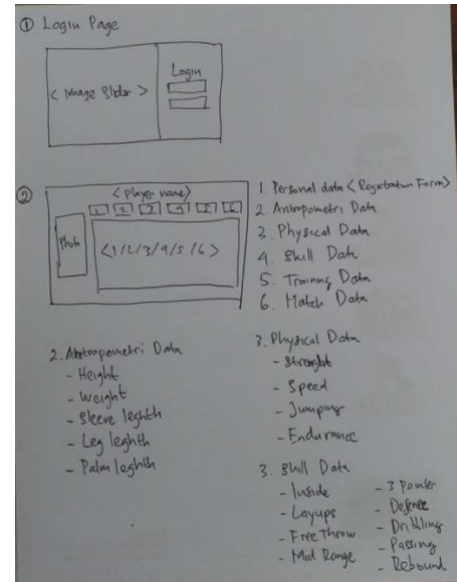 ① Login Page
< Image Slider >
Login
②
< player name >
1 2 3 4 5 6
Photo
<1/2/3/4/5/6>
1. Personal data < Registration Form >
2. Antropometri Data
3. Physical Data
4. Skill Data
5. Training Data
6. Match Data
2. Antropometri Data
- Height
- Weight
- Sleeve leghth
- Leg leghth
- Palm leghth
3. Physical Data
- Strenght
- Speed
- Jumping
- Endurance
3. Skill Data
- Inside
- Layups
- Free Throw
- Mid Range
- 3 Pointer
- Defense
- Dribbling
- Passing
- Rebound